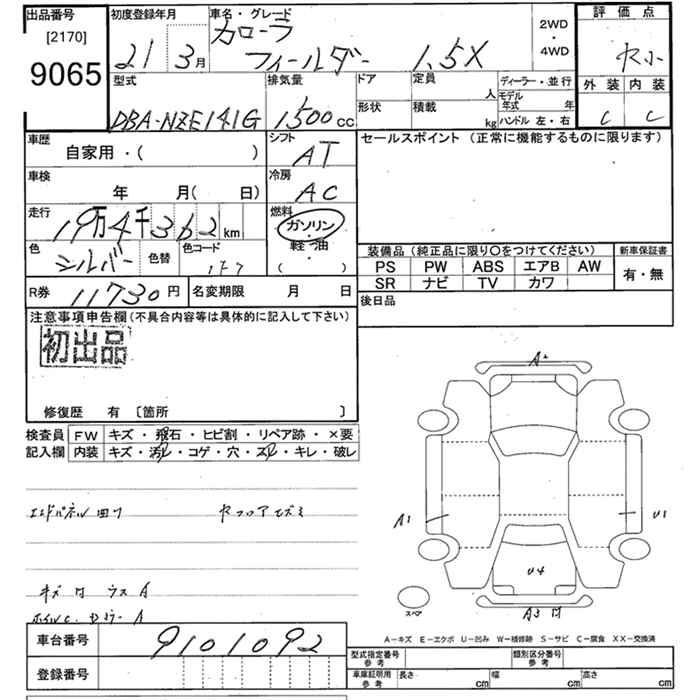 出品番号
[2170]
9065
初度登録年月
21 3月
車名・グレード
カローラ
フィールダー 1.5X
2WD
・
4WD
評価点
外装 内装
C C
型式
DBA-NZE141G
排気量
1500cc
ドア
定員
人
形状
積載
kg
ディーラー・並行
モデル
年式 年
ハンドル 左・右
車歴
自家用・( )
シフト
AT
車検
年 月( 日)
冷房
AC
走行
19万4千362km
燃料
ガソリン
・
軽油
・
( )
色
シルバー
色替
色コード
R券
11730円
名変期限 月 日
セールスポイント (正常に機能するものに限ります)
装備品(純正品に限り○をつけてください)
新車保証書
PS PW ABS エアB AW
SR ナビ TV カワ
有・無
後日品
注意事項申告欄(不具合内容等は具体的に記入して下さい)
初出品
修復歴 有 〔箇所 〕
検査員
記入欄
FW キズ・飛石・ヒビ割・リペア跡・×要
内装 キズ・汚れ・コゲ・穴・スレ・キレ・破レ
エンドパネル凹
キズ 凹 ウス A
A2
A1
U1
U4
A3 凹
スペア
A−キズ E−エクボ U−凹み W−補修跡 S−サビ C−腐食 XX−交換済
車台番号
9101092
登録番号
型式指定番号
参考
類別区分番号
参考
車庫証明用
参考
長さ cm
幅 cm
高さ cm